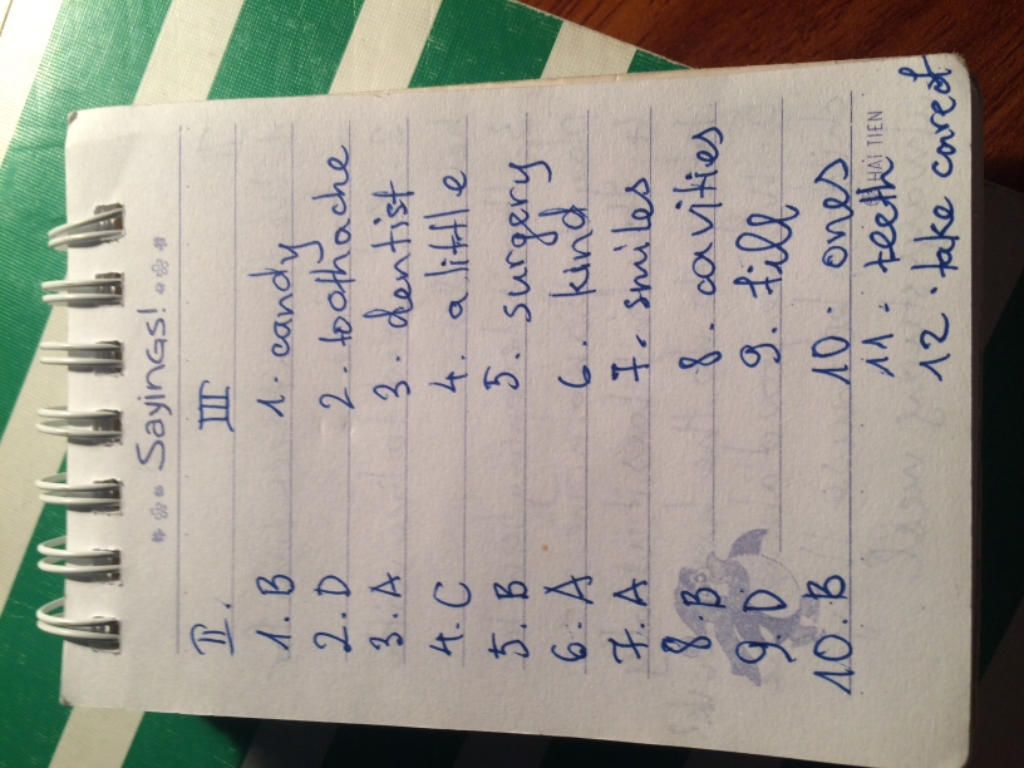 Sayings!
II. III
1. B 1. candy
2. D 2. toothache
3. A 3. dentist
4. C 4. a little
5. B 5. surgery
6. A 6. kind
7. A 7. smiles
8. B 8. cavities
9. D 9. fill
10. B 10. ones
HẢI TIẾN
11. teeth
12. take care of